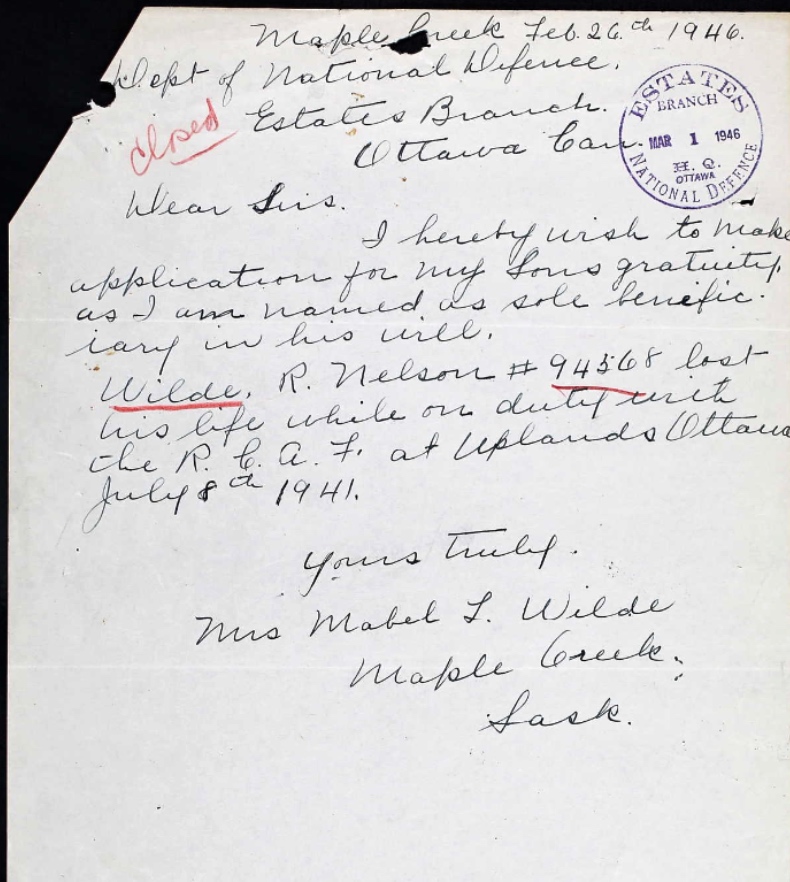 Maple Creek Feb. 26.th 1946.
Dept of National Defence.
Estates Branch.
Ottawa Can.
closed
ESTATES
BRANCH
MAR 1 1946
H. Q.
OTTAWA
NATIONAL DEFENCE
Dear Sirs.
I hereby wish to make
application for my Sons gratuity,
as I am named as sole benific-
iary in his will.
Wilde, R. Nelson # 94568 lost
his life while on duty with
the R. C. A. F. at Uplands Ottawa
July 8th 1941.
Yours truly.
Mrs Mabel L. Wilde
Maple Creek,
Sask.